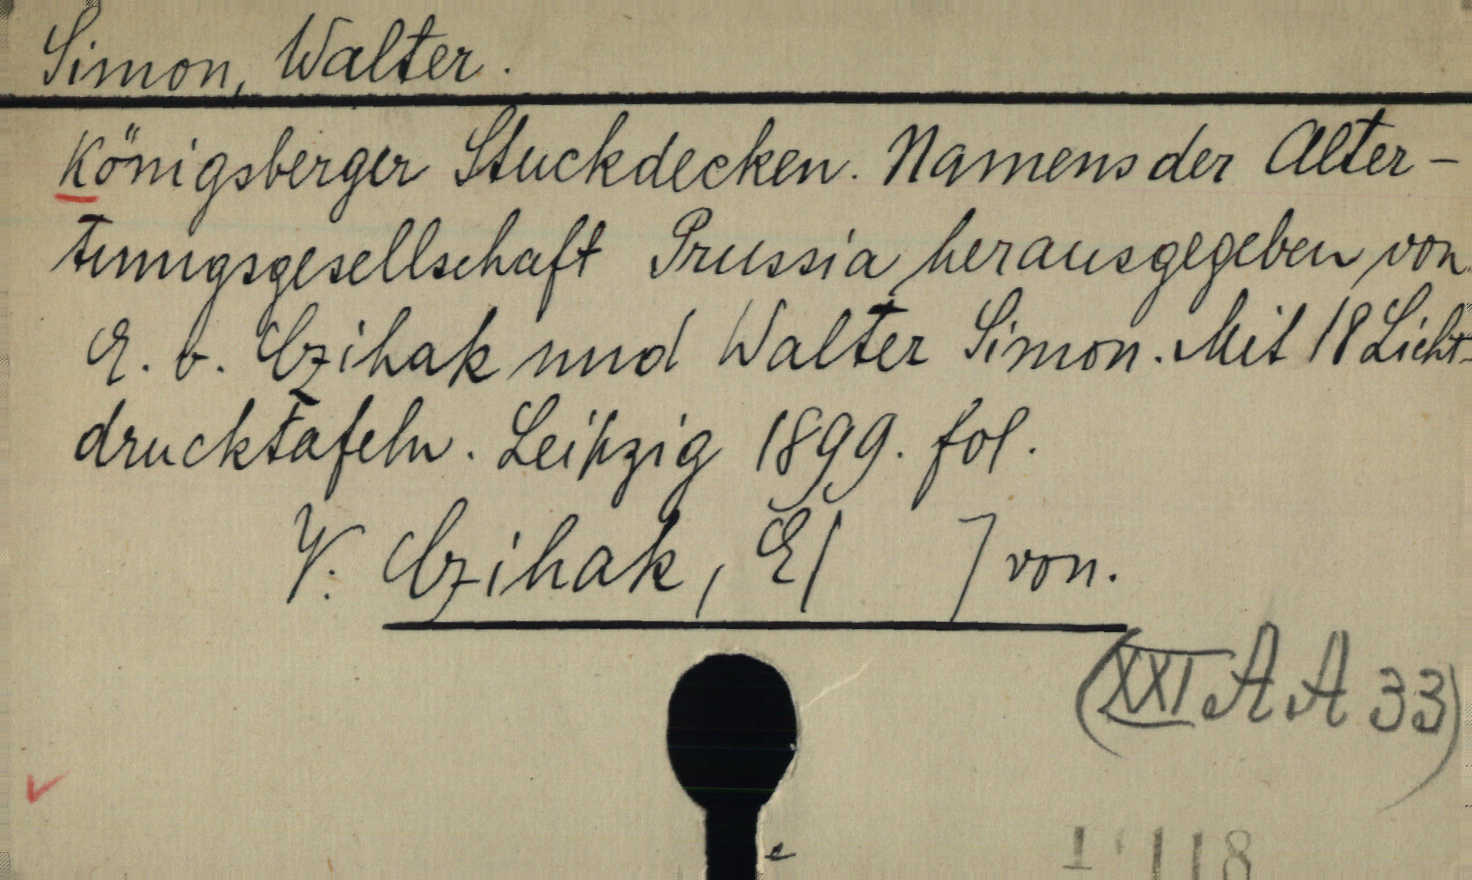 Simon, Walter.
Königsberger Stuckdecken. Namens der Alter-
tumsgesellschaft Prussia herausgegeben von
E. v. Czihak und Walter Simon. Mit 18 Licht-
drucktafeln. Leipzig 1899. fol.
V. Czihak, E[ ] von.
(XXI A A 33)